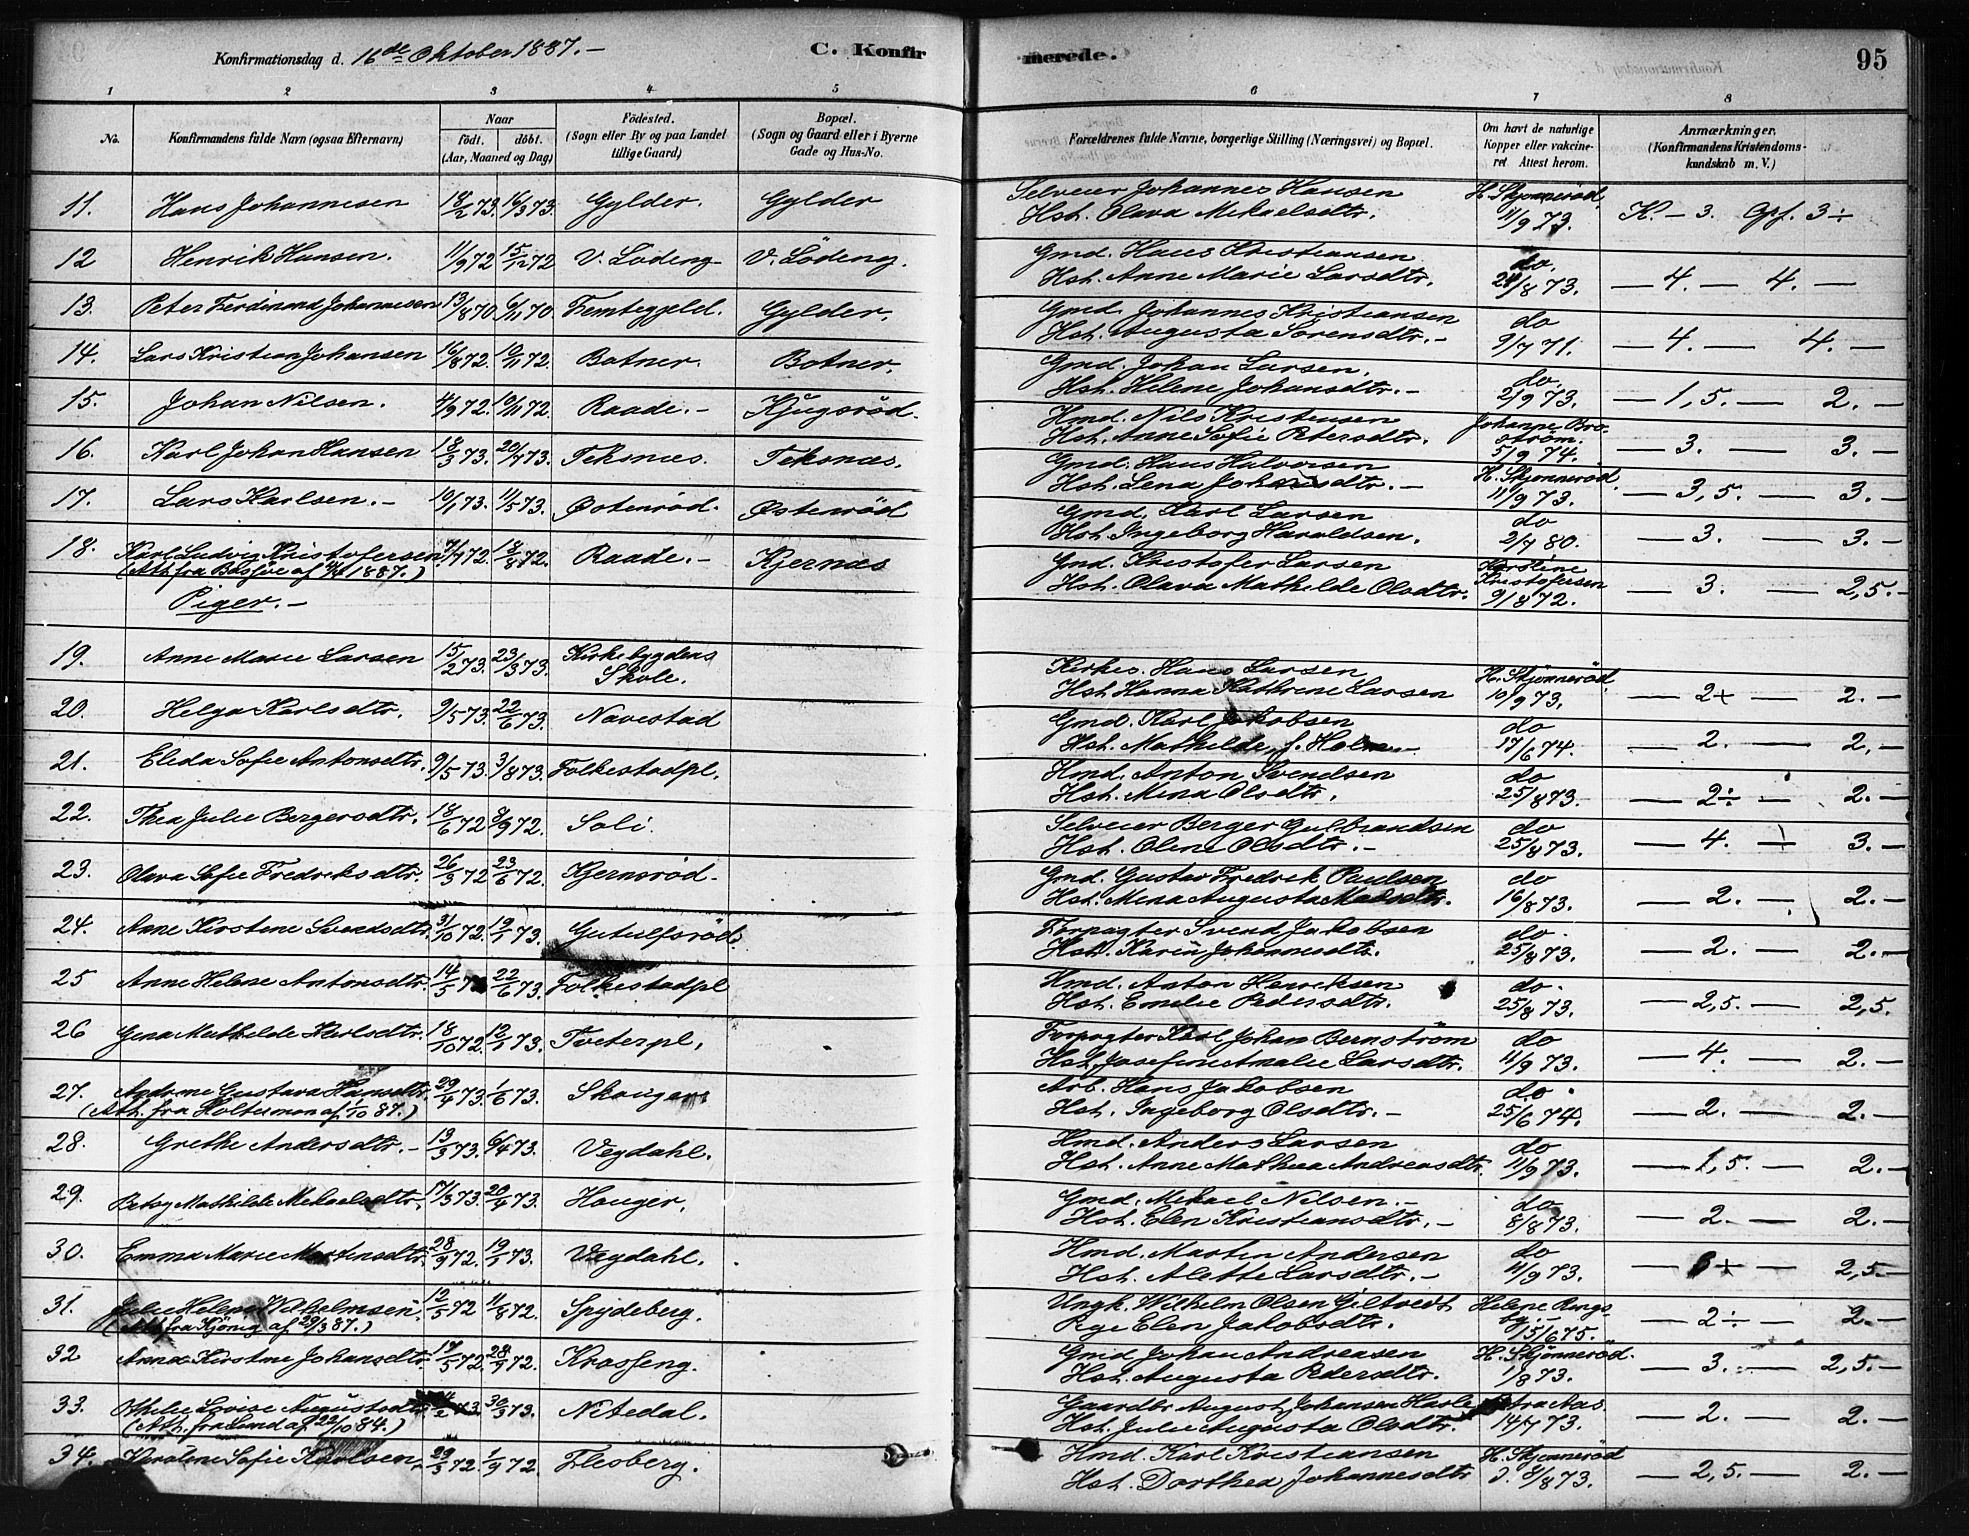 Konfirmationsdag d. 16de Oktober 1887. –
C. Konfirmerede.
95
1 2 3 4 5 6 7 8
No. Konfirmandens fulde Navn (ogsaa Efternavn) Naar födt. döbt. (Aar, Maaned og Dag) Födested. (Sogn eller By og paa Landet tillige Gaard) Bopæl. (Sogn og Gaard eller i Byerne Gade og Hus-No. Forældrenes fulde Navne, borgerlige Stilling (Næringsvei) og Bopæl. Om havt de naturlige Kopper eller vakcineret. Attest herom. Anmærkninger. (Konfirmandens Kristendomskundskab m. V.)
11. Hans Johannesen 18/2 73. 16/3 73. Gylder. Gylder Selveier Johannes Hansen
Hst. Olava Mekaelsdtr. H. Skjønnerød. 11/9 73. K. – 3. Opf. 3 ÷
12 Henrik Hansen. 11/9 72 15/12 72 V. Lödeng V. Lödeng. Gmd. Hans Kristiansen
Hst. Anne Marie Larsdtr. do. 28/8 73. — 4. — 4. —
13. Peter Ferdinand Johannesen 13/8 70 6/11 70 Femtegjeld. Gylder. Gmd. Johannes Kristiansen
Hst. Augusta Sorensdtr. – do 9/7 71. — 4. — 4. —
14. Lars Kristian Johansen 16/8 72. 10/11 72. Botner. Botner. Gmd. Johan Larsen.
Hst. Helene Johansdtr. – do. 2/9 73. — 1,5. — 2. —
15. Johan Nilsen. 4/9 72. 10/11 72. Raade. – Kjugsröd. Hmd. Nils Kristensen
Hst. Anne Sofie Petersdtr. Johanne Broström. 5/9 74. — 3. — 3. —
16. Karl Johan Hansen 18/3 73. 20/7 73. Teksnæs. Teksnæs. Gmd. Hans Halvorsen
Hst. Lena Johansdtr. – H. Skjønnerød. 11/9 73. — 3,5. — 3. —
17. Lars Karlsen. – 10/1 73. 11/5 73. Østenröd. Østenröd Gmd. Karl Larsen
Hst. Ingeborg Haraldsen. do 2/7 80. — 3. — 3. —
18. Karl Ludvig Kristofersen 7/7 72. 18/8 72. Raade. – Kjernæs Gmd. Kristofer Larsen
(Att. fra 1887.) Hst. Olava Mathilde Olsdtr. Karoline Kristofersen 9/8 72. — 3. — 2,5. —
Piger. –
19. Anne Marie Larsen 15/2 73. 23/3 73. Kirkebygdens Skole. Kirkes. Hans Larsen
Hst. Hanna Kathrine Larsen H. Skjönneröd. 10/9 73. — 2+ — 2. —
20. Helga Karlsdtr. 9/5 73. 22/6 73. Navestad Gmd. Karl Jakobsen
Hst. Mathilde, f. Holm – do 17/6 74. — 2. — 2. —
21. Elida Sofie Antonsdtr. 9/5 73. 3/8 73. Folkestadpl. Hmd. Anton Svendsen
Hst. Mina Olsdtr. do 25/8 73. — 2÷ — 2. —
22. Thea Julie Bergersdtr. 18/6 72 8/9 72. Soli. Selveier Berger Gulbrandsen
Hst. Olene Olsdtr. – do 25/8 73. — 4. — 3. —
23. Olava Sofie Fredriksdtr. 26/3 72 23/6 72. Kjernsröd. Gmd. Gustav Fredrik Paulsen
Hst. Mina Augusta Madsdtr. do 16/8 73. — 2. — 2. —
24. Anne Kirstene Svendsdtr. 31/10 72. 19/1 73. Gutulfsröd. Forpagter Svend Jakobsen
Hst. Karin Johannesdtr. do. 25/8 73. — 2. — 2. —
25 Anne Helene Antonsdtr. 14/5 73 22/6 73. Folkestadpl Hmd. Anton Henriksen
Hst. Emilie Pedersdtr. do. 25/8 73. — 2,5. — 2,5.
26 Gina Mathilde Karlsdtr. 18/10 72. 12/1 73. Tveterpl. Forpagter Karl Johan Bernström
Hst. Josefine Amalie Larsdtr. do 11/9 73. — 4. — 2. —
27. Andrine Gustava Hansdtr. 29/4 73. 1/6 73. Skouger Arb. Hans Jakobsen
(Att. fra Holtermon af 1/10 87.) Hst. Ingeborg Olsdtr. – do. 25/6 74. — 2. — 2. —
28. Grethe Andersdtr. – 13/3 73. 6/4 73. Vegdahl. Hmd. Anders Larsen
Hst. Anne Mathea Andreasdtr. do 11/9 73. — 1,5. — 2. —
29. Betsy Mathilde Mekaelsdtr. 17/3 73. 20/4 73. Houger. Gmd. Mekael Nilsen. –
Hst. Elen Kristiansdtr. – do 8/8 73. — 2. — 2. —
30. Emma Marie Martinsdtr. 28/9 72. 19/1 73. Vegdahl. Hmd. Martin Andersen
Hst. Alette Larsdtr. – do 11/9 73. 2,5. —
31. Julie Helene Wilhelmsen. 12/5 72 11/8 72. Spydeberg. Ungk. Wilhelm Olsen Giltvedt
(Att. fra Kjönig af 29/3 87.) Pige Elen Jakobsdtr. Helene Ringsby. – 15/6 75. — 2÷ — 2. —
32 Anna Kirstine Johansdtr. 17/5 72. 28/9 72. Krosseng. Gmd. Johan Andreasen
Hst. Augusta Pedersdtr. H. Skjönneröd. 1/8 73. — 3. — 2,5. —
33. Othilie Lovise Augustsdtr. /2 73. 30/3 73. Nitedal. Gaardbr. August Johansen Harle
(Att. fra Lund af 22/10 84.) Hst. Julie Augusta Olsdtr. Petra Aas 14/7 73. — 2. — 2. —
34. Karoline Sofie Karlsen. 29/3 72 1/9 72. Flesberg. Hmd. Karl Kristiansen
Hst. Dorthea Johannesdtr. H. Skjønneröd d. 8/8 73. — 2,5. — 2. —